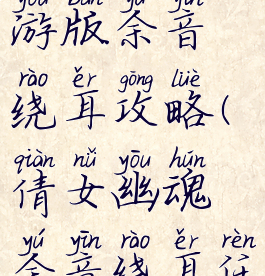 yóu bǎn yú yīn
游版余音
rào ěr gōng lüè
绕耳攻略(
qiàn nǚ yōu hún
倩女幽魂
yú yīn rào ěr rèn
余音绕耳任